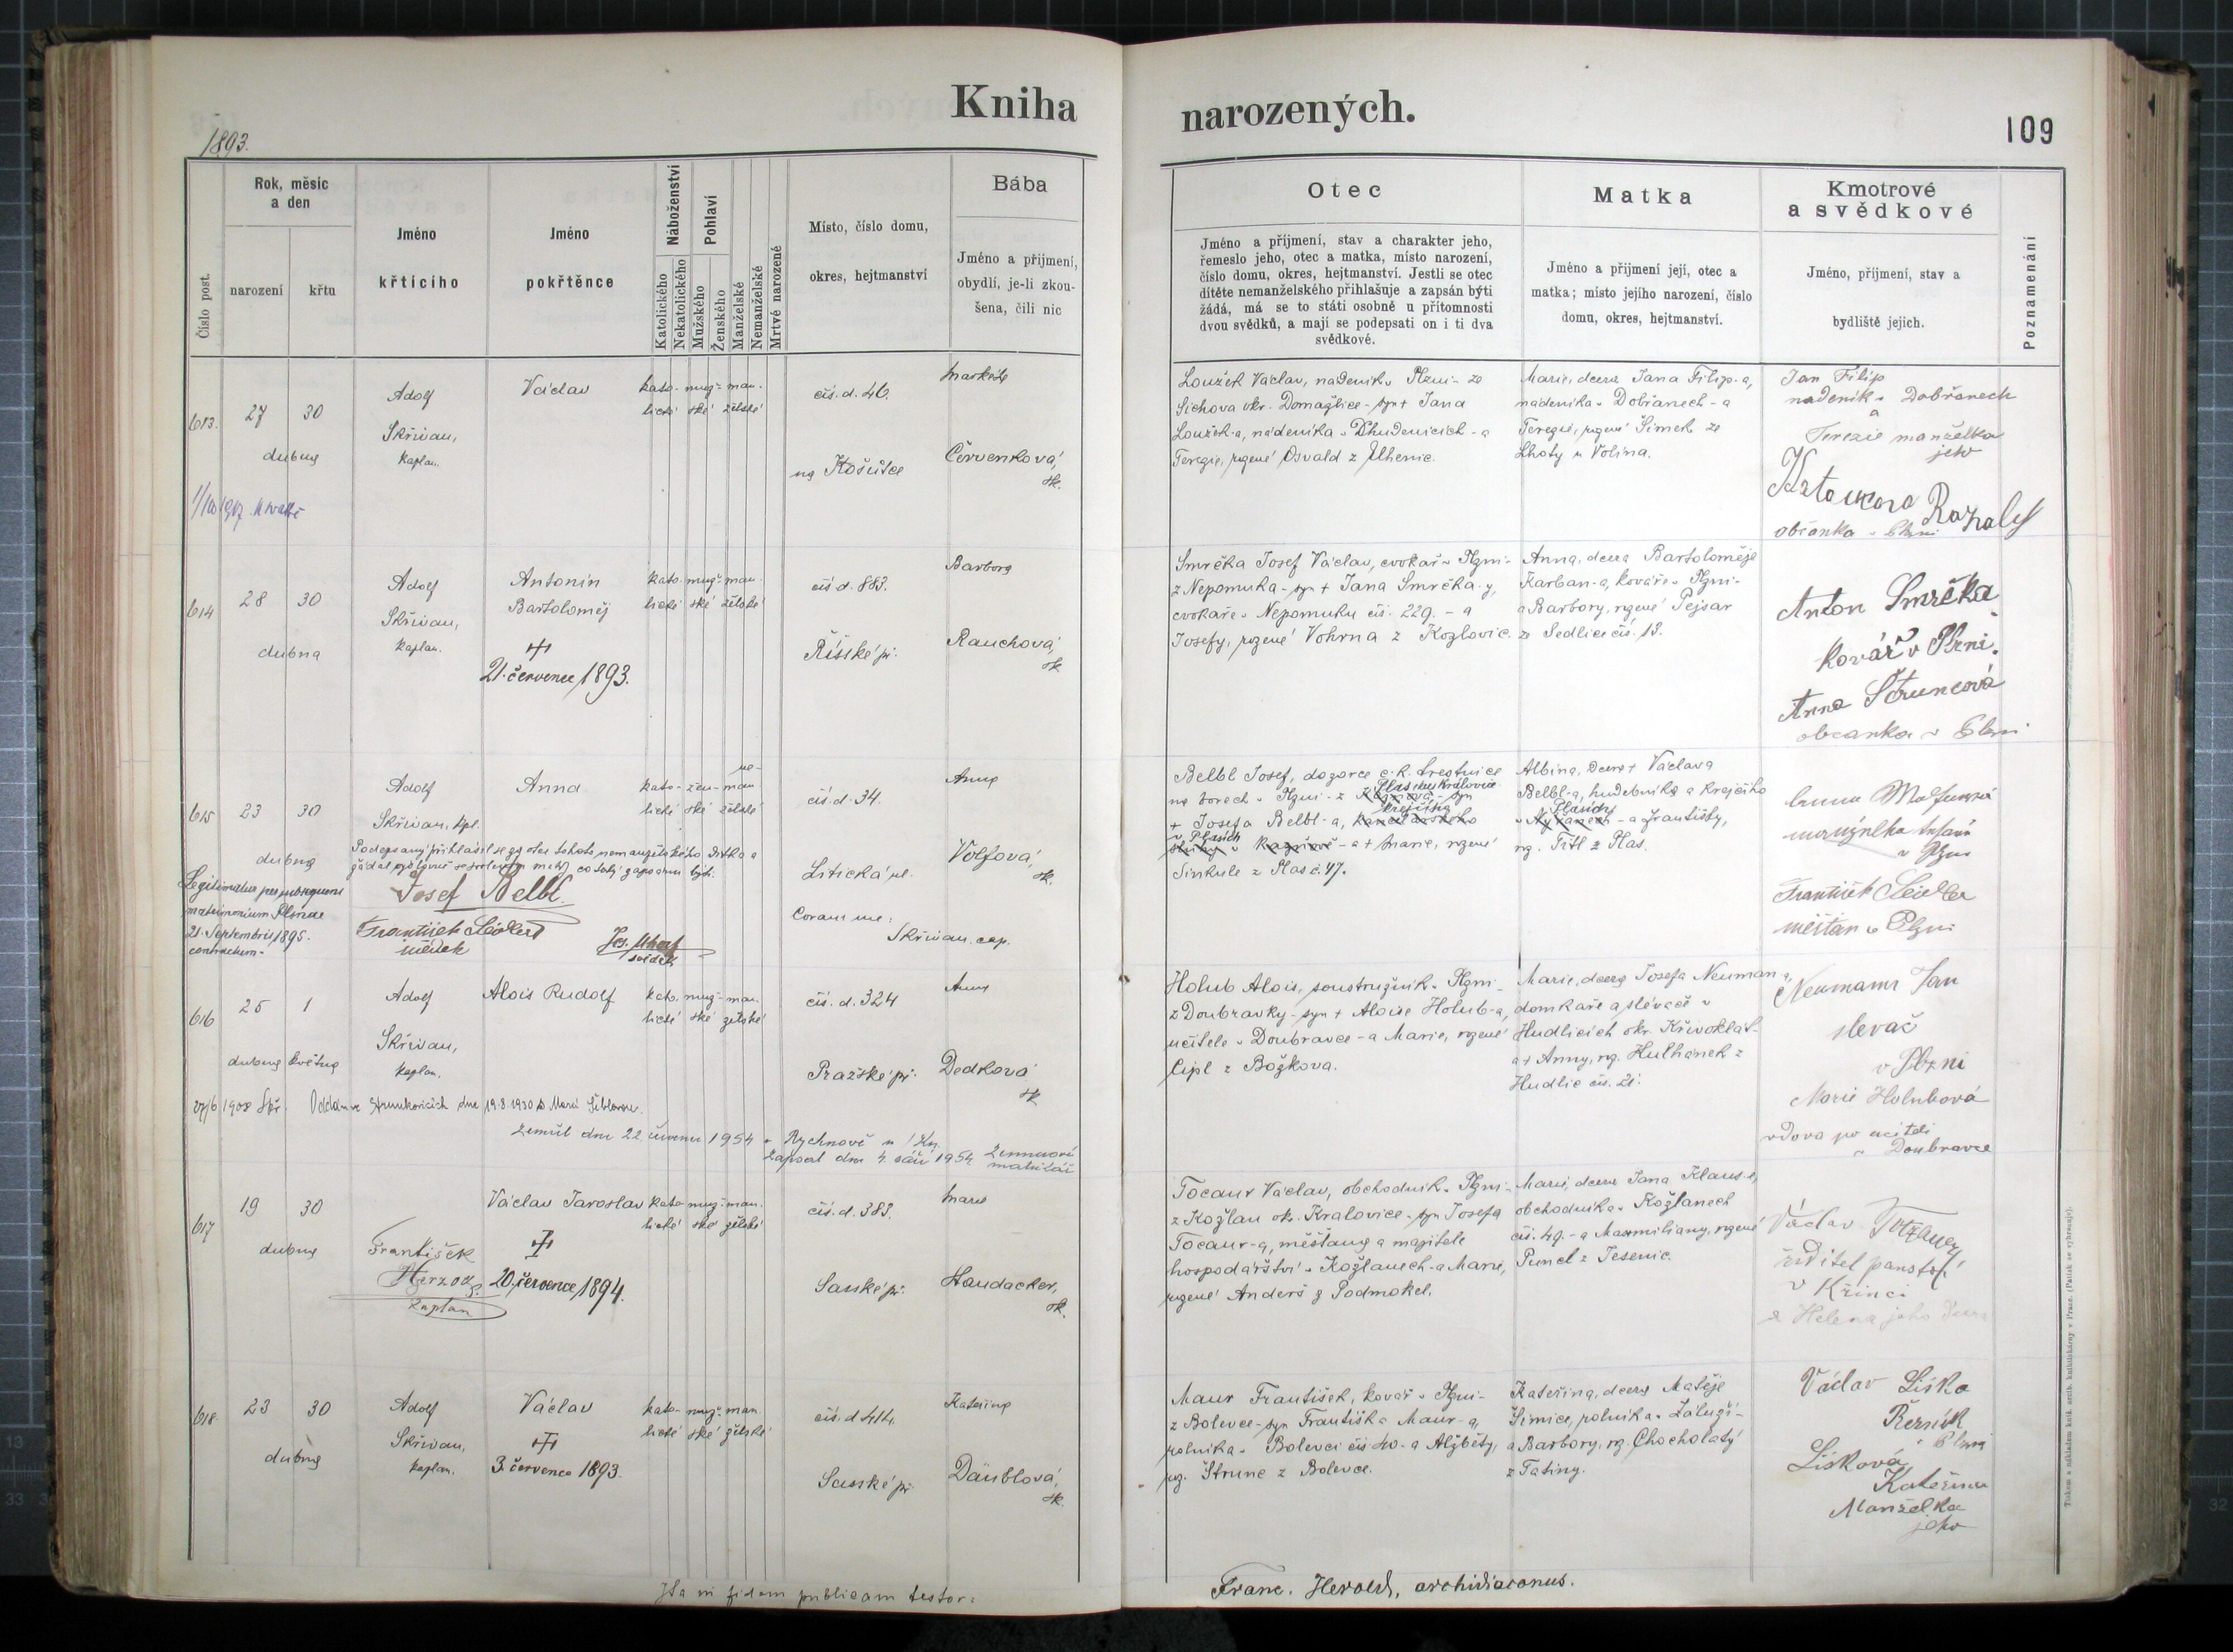 Kniha
narozených.
109
1893.
Číslo post.
Rok, měsíc
a den
narození
křtu
Jméno
křtícího
Jméno
pokřtěnce
Náboženství
Katolického
Nekatolického
Pohlaví
Mužského
Ženského
Manželské
Nemanželské
Mrtvě narozené
Místo, číslo domu,
okres, hejtmanství
Bába
Jméno a příjmení,
obydlí, je-li zkou-
šena, čili nic
Otec
Jméno a příjmení, stav a charakter jeho,
řemeslo jeho, otec a matka, místo narození,
číslo domu, okres, hejtmanství. Jestli se otec
dítěte nemanželského přihlašuje a zapsán býti
žádá, má se to státi osobně u přítomnosti
dvou svědků, a mají se podepsati on i ti dva
svědkové.
Matka
Jméno a příjmení její, otec a
matka; místo jejího narození, číslo
domu, okres, hejtmanství.
Kmotrové
a svědkové
Jméno, příjmení, stav a
bydliště jejich.
Poznamenání
613.
27
30
dubna
Adolf
Skřivan,
kaplan.
Václav
kato- muž- man-
lické ské želské
čís. d. 46.
na Košutce
Markéta
Červenková,
zk.
Loužek Václav, nádeník v Plzni - ze
Sichova okr. Domažlice - syn + Jana
Loužek-a, nádeníka v Chudenicích - a
Terezie, rozené Osvald z Ulhenic.
Marie, dcera Jana Filip-a,
nádeníka v Dobřanech - a
Terezie, rozené Šimek ze
Lhoty u Volina.
Jan Filip
nadeník v Dobřanech
a
Terezie manželka
jeho
občanka v Plzni
614
28
30
dubna
Adolf
Skřivan,
kaplan.
Antonín
Bartoloměj
21. července 1893.
kato- muž- man-
lické ské želské
čís d. 883.
Říšské př.
Barbora
Rauchová,
zk
Smrčka Josef Václav, cvokař v Plzni -
z Nepomuka - syn + Jana Smrčka-y,
cvokaře v Nepomuku čís. 229. - a
Josefy, rozené Vohrna z Kozlovic.
Anna, dcera Bartoloměje
Karban-a, kováře v Plzni -
a Barbory, rozené Pejsar
ze Sedlice čís. 13.
Anton Smrčka
Kovář v Plzni.
Anna Štruncová
obcanka v Plzni
615
23
30
dubna
Adolf
Skřivan, kpl.
Anna
ne-
kato- žen- man-
lické ské želské
čís. d. 34.
Litická ul.
Anna
Volfová,
zk.
Podepsaný přihlásil se za otce tohoto nemanželského dítka a
Josef Belbl.
svědek
svědek
Coram me:
Skřivan. cap.
Legitimatus per subsequens
matrimonium Plsnae
21. Septembris 1895.
contractum.
Belbl Josef, dozorce c. k. trestnice
na Borech v Plzni - z
+ Josefa Belbl-a,
v Plasích
- a + Marie, rozené
Sinkule z Plas č. 47.
Albína, dcera + Václava
Belbl-a, hudebníka a krejčího
v Plasích
- a Františky,
roz. Títl z Plas.
v Plzni
měšťan v Plzni
616
25
1
dubna května
Adolf
Skřivan,
kaplan.
Alois Rudolf
kato- muž- man-
lické ské želské
čís. d. 324
Pražské př.
Anna
Dedková
zk
Holub Alois, soustružník v Plzni -
z Doubravky - syn + Aloise Holub-a,
učitele v Doubravce - a Marie, rozené
Cipl z Božkova.
Marie, dcera Josefa Neuman-a,
domkáře a slévače v
Hudlicích okr. Křivoklát -
a + Anny, roz. Hulhánek z
Hudlic čís. 21.
Neumann Jan
slevač
v Plzni
Marie Holubová
vdova po uciteli
v Doubravce
Zemřel dne 22. července 1954 v Rychnově n/Kn.
Zapsal dne 4. září 1954
617
19
30
dubna
František
Herzog,
kaplan
Václav Jaroslav
20. července 1894.
kato- muž- man-
lické ské želské
čís. d. 383.
Saské př.
Marie
Haudacker,
zk.
Tocaur Václav, obchodník v Plzni -
z Kožlan ok. Kralovice - syn Josefa
Tocaur-a, měšťana a majitele
hospodářství v Kožlanech - a Marie,
rozené Anderš z Podmokel.
Marie, dcera Jana Klaus-a,
obchodníka v Kožlanech
čís. 49. - a Maxmiliany, rozené
Puncl z Jesenic.
Václav
ředitel panství
v Křinci
a Helena jeho dcera
618.
23
30
dubna
Adolf
Skřivan,
kaplan.
Václav
3. července 1893.
kato- muž- man-
lické ské želské
čís. d 414.
Saské př.
Kateřina
Däublová,
zk.
Maur František, kovář v Plzni -
z Bolevce - syn Františka Maur-a,
rolníka v Bolevci čís 40. a Alžběty,
roz. Strunc z Bolevce.
Kateřina, dcera Matěje
Šimice, rolníka v Záluží -
a Barbory, roz. Chocholatý
z Tatiny.
Václav Liška
Řezník
v Plzni
Lísková
Kateřina
Manželka
jeho
Ita in fidem publicam testor:
Franc. Herold, archidiaconus.